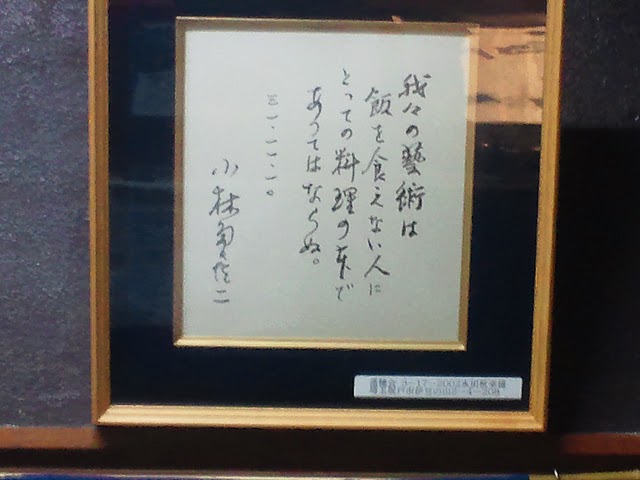 我々の藝術は
飯を食えない人に
とっての料理の本で
あってはならぬ。
三一.一一.一〇
小林多喜二